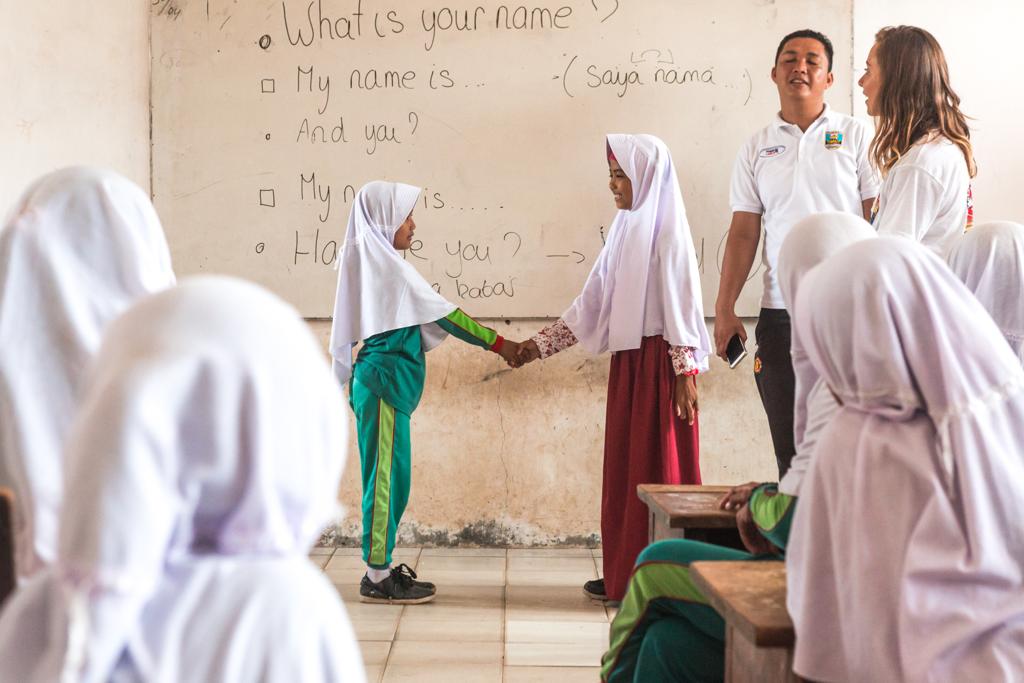 What is your name?
My name is... (saya nama...)
And you?
My n is.....
Ha e you? →
a kabar